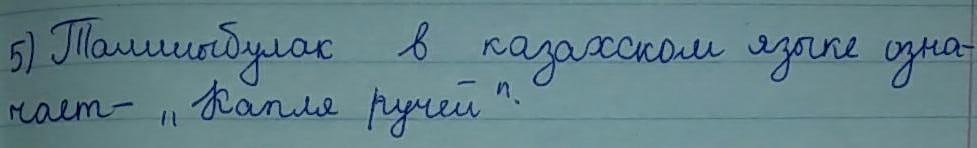 5) Тамшыбулак в казахском языке озна-
чает- „Капля ручей".